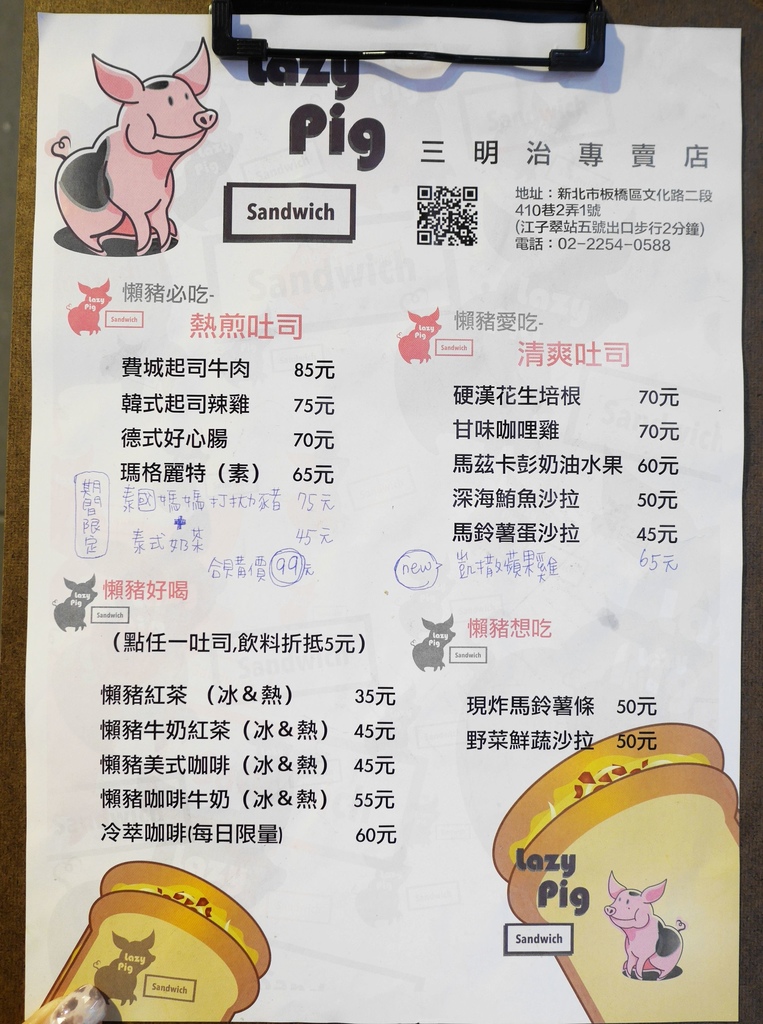 Lazy
Pig
Sandwich
三明治專賣店
地址：新北市板橋區文化路二段
410巷2弄1號
(江子翠站五號出口步行2分鐘)
電話：02-2254-0588
Lazy
Pig
Sandwich
懶豬必吃-
熱煎吐司
費城起司牛肉 85元
韓式起司辣雞 75元
德式好心腸 70元
瑪格麗特（素） 65元
期間限定
泰國媽媽打拋豬 75元
+
泰式奶茶 45元
合購價 99元
Lazy
Pig
Sandwich
懶豬愛吃-
清爽吐司
硬漢花生培根 70元
甘味咖哩雞 70元
馬茲卡彭奶油水果 60元
深海鮪魚沙拉 50元
馬鈴薯蛋沙拉 45元
new 凱撒蘋果雞 65元
Lazy
Pig
Sandwich
懶豬好喝
（點任一吐司,飲料折抵5元）
懶豬紅茶 （冰＆熱） 35元
懶豬牛奶紅茶（冰＆熱） 45元
懶豬美式咖啡（冰＆熱） 45元
懶豬咖啡牛奶（冰＆熱） 55元
冷萃咖啡(每日限量) 60元
Lazy
Pig
Sandwich
懶豬想吃
現炸馬鈴薯條 50元
野菜鮮蔬沙拉 50元
Lazy
Pig
Sandwich
Lazy
Pig
Sandwich